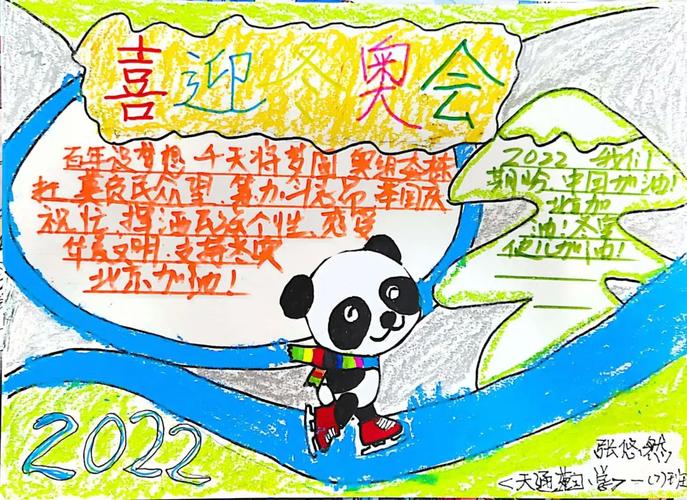 喜迎冬奥会
百年追梦想 千天将梦圆 奥组委株
民众望 努力斗志昂 举国庆
祝忙 挥洒 个性 感受
华夏文明 支持冬奥
北京加油！
2022 我们
期盼 中国加油！
北京加
油！冬奥
健儿加油！
2022
张悠然
<天通苑小学>一(7)班